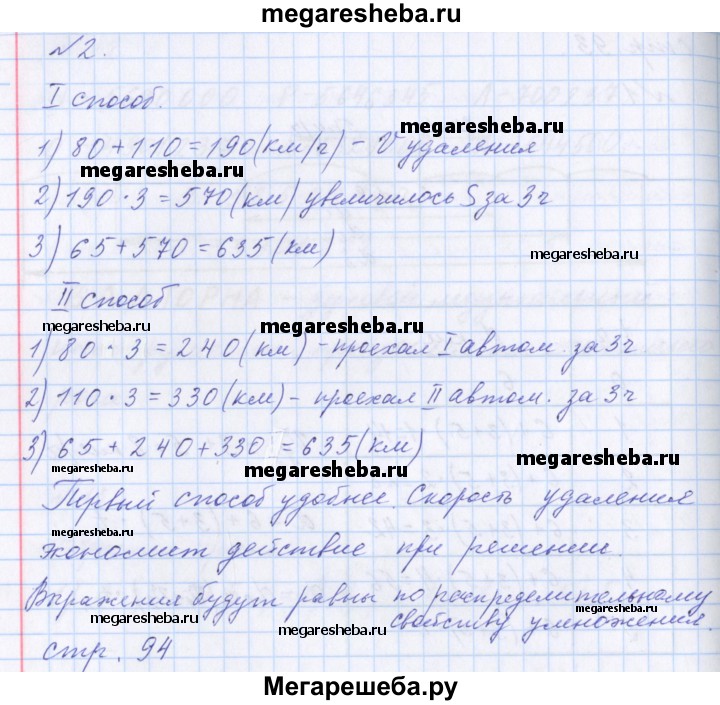 megaresheba.ru
№2.
I способ.
megaresheba.ru
1) 80 + 110 = 190 (км/г) - V удаления
megaresheba.ru
2) 190 · 3 = 570 (км) увеличилось S за 3 ч
3) 65 + 570 = 635 (км)
megaresheba.ru
II способ
megaresheba.ru
megaresheba.ru
1) 80 · 3 = 240 (км) - проехал I автом. за 3 ч
2) 110 · 3 = 330 (км) - проехал II автом. за 3 ч
3) 65 + 240 + 330 = 635 (км)
megaresheba.ru
megaresheba.ru
megaresheba.ru
Первый способ удобнее. Скорость удаления
megaresheba.ru
экономит действие при решении.
Выражения будут равны по распределительному
megaresheba.ru
megaresheba.ru
свойству умножения.
megaresheba.ru
стр. 94
Мегарешеба.ру